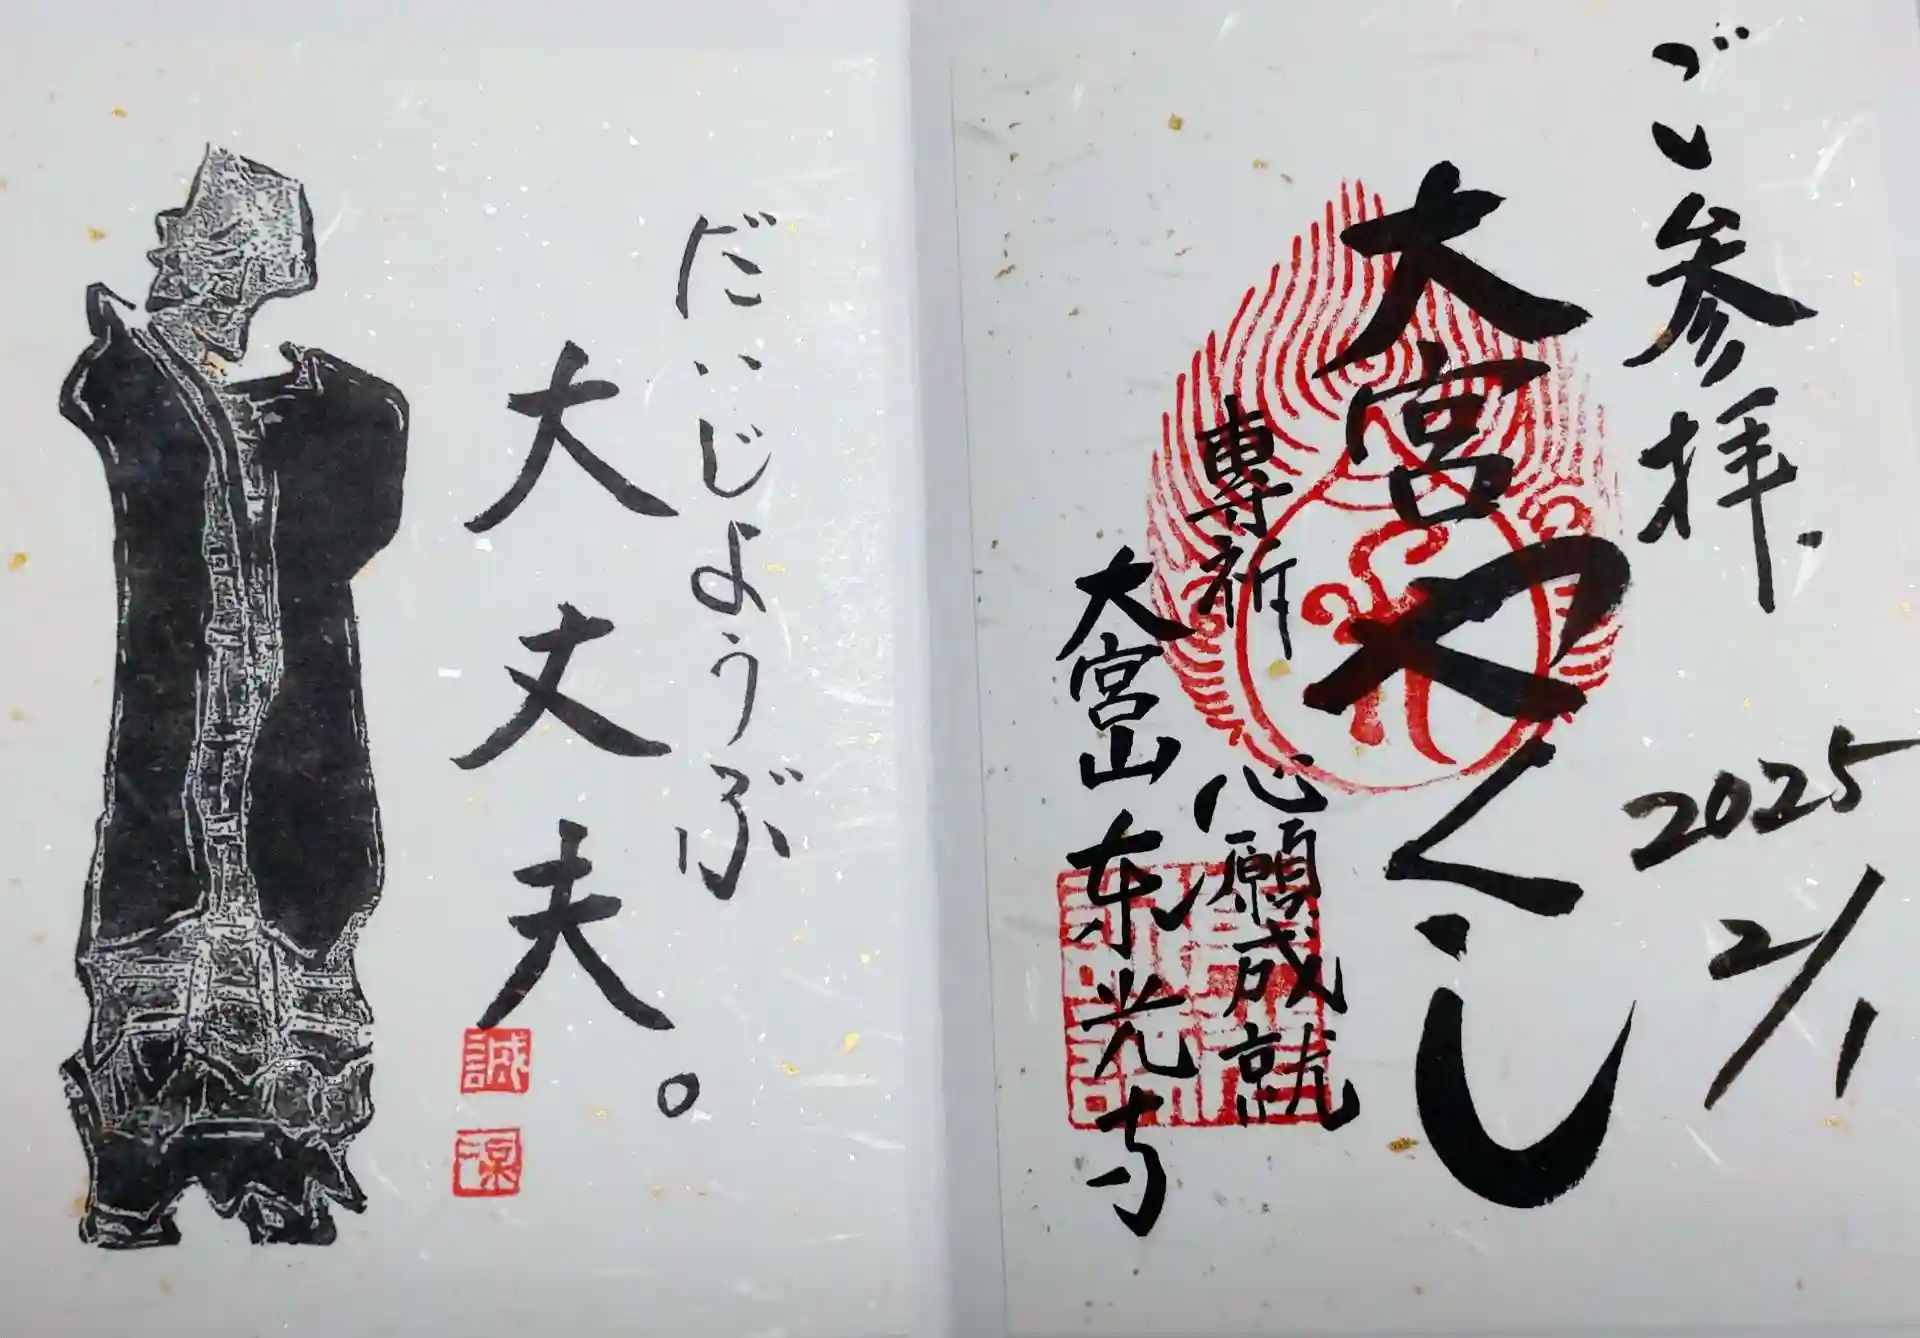 ご参拝.
2025
2/1
大宮やくし
専祈 心願成就
大宮山 东光寺
だいじょうぶ
大丈夫。
誠